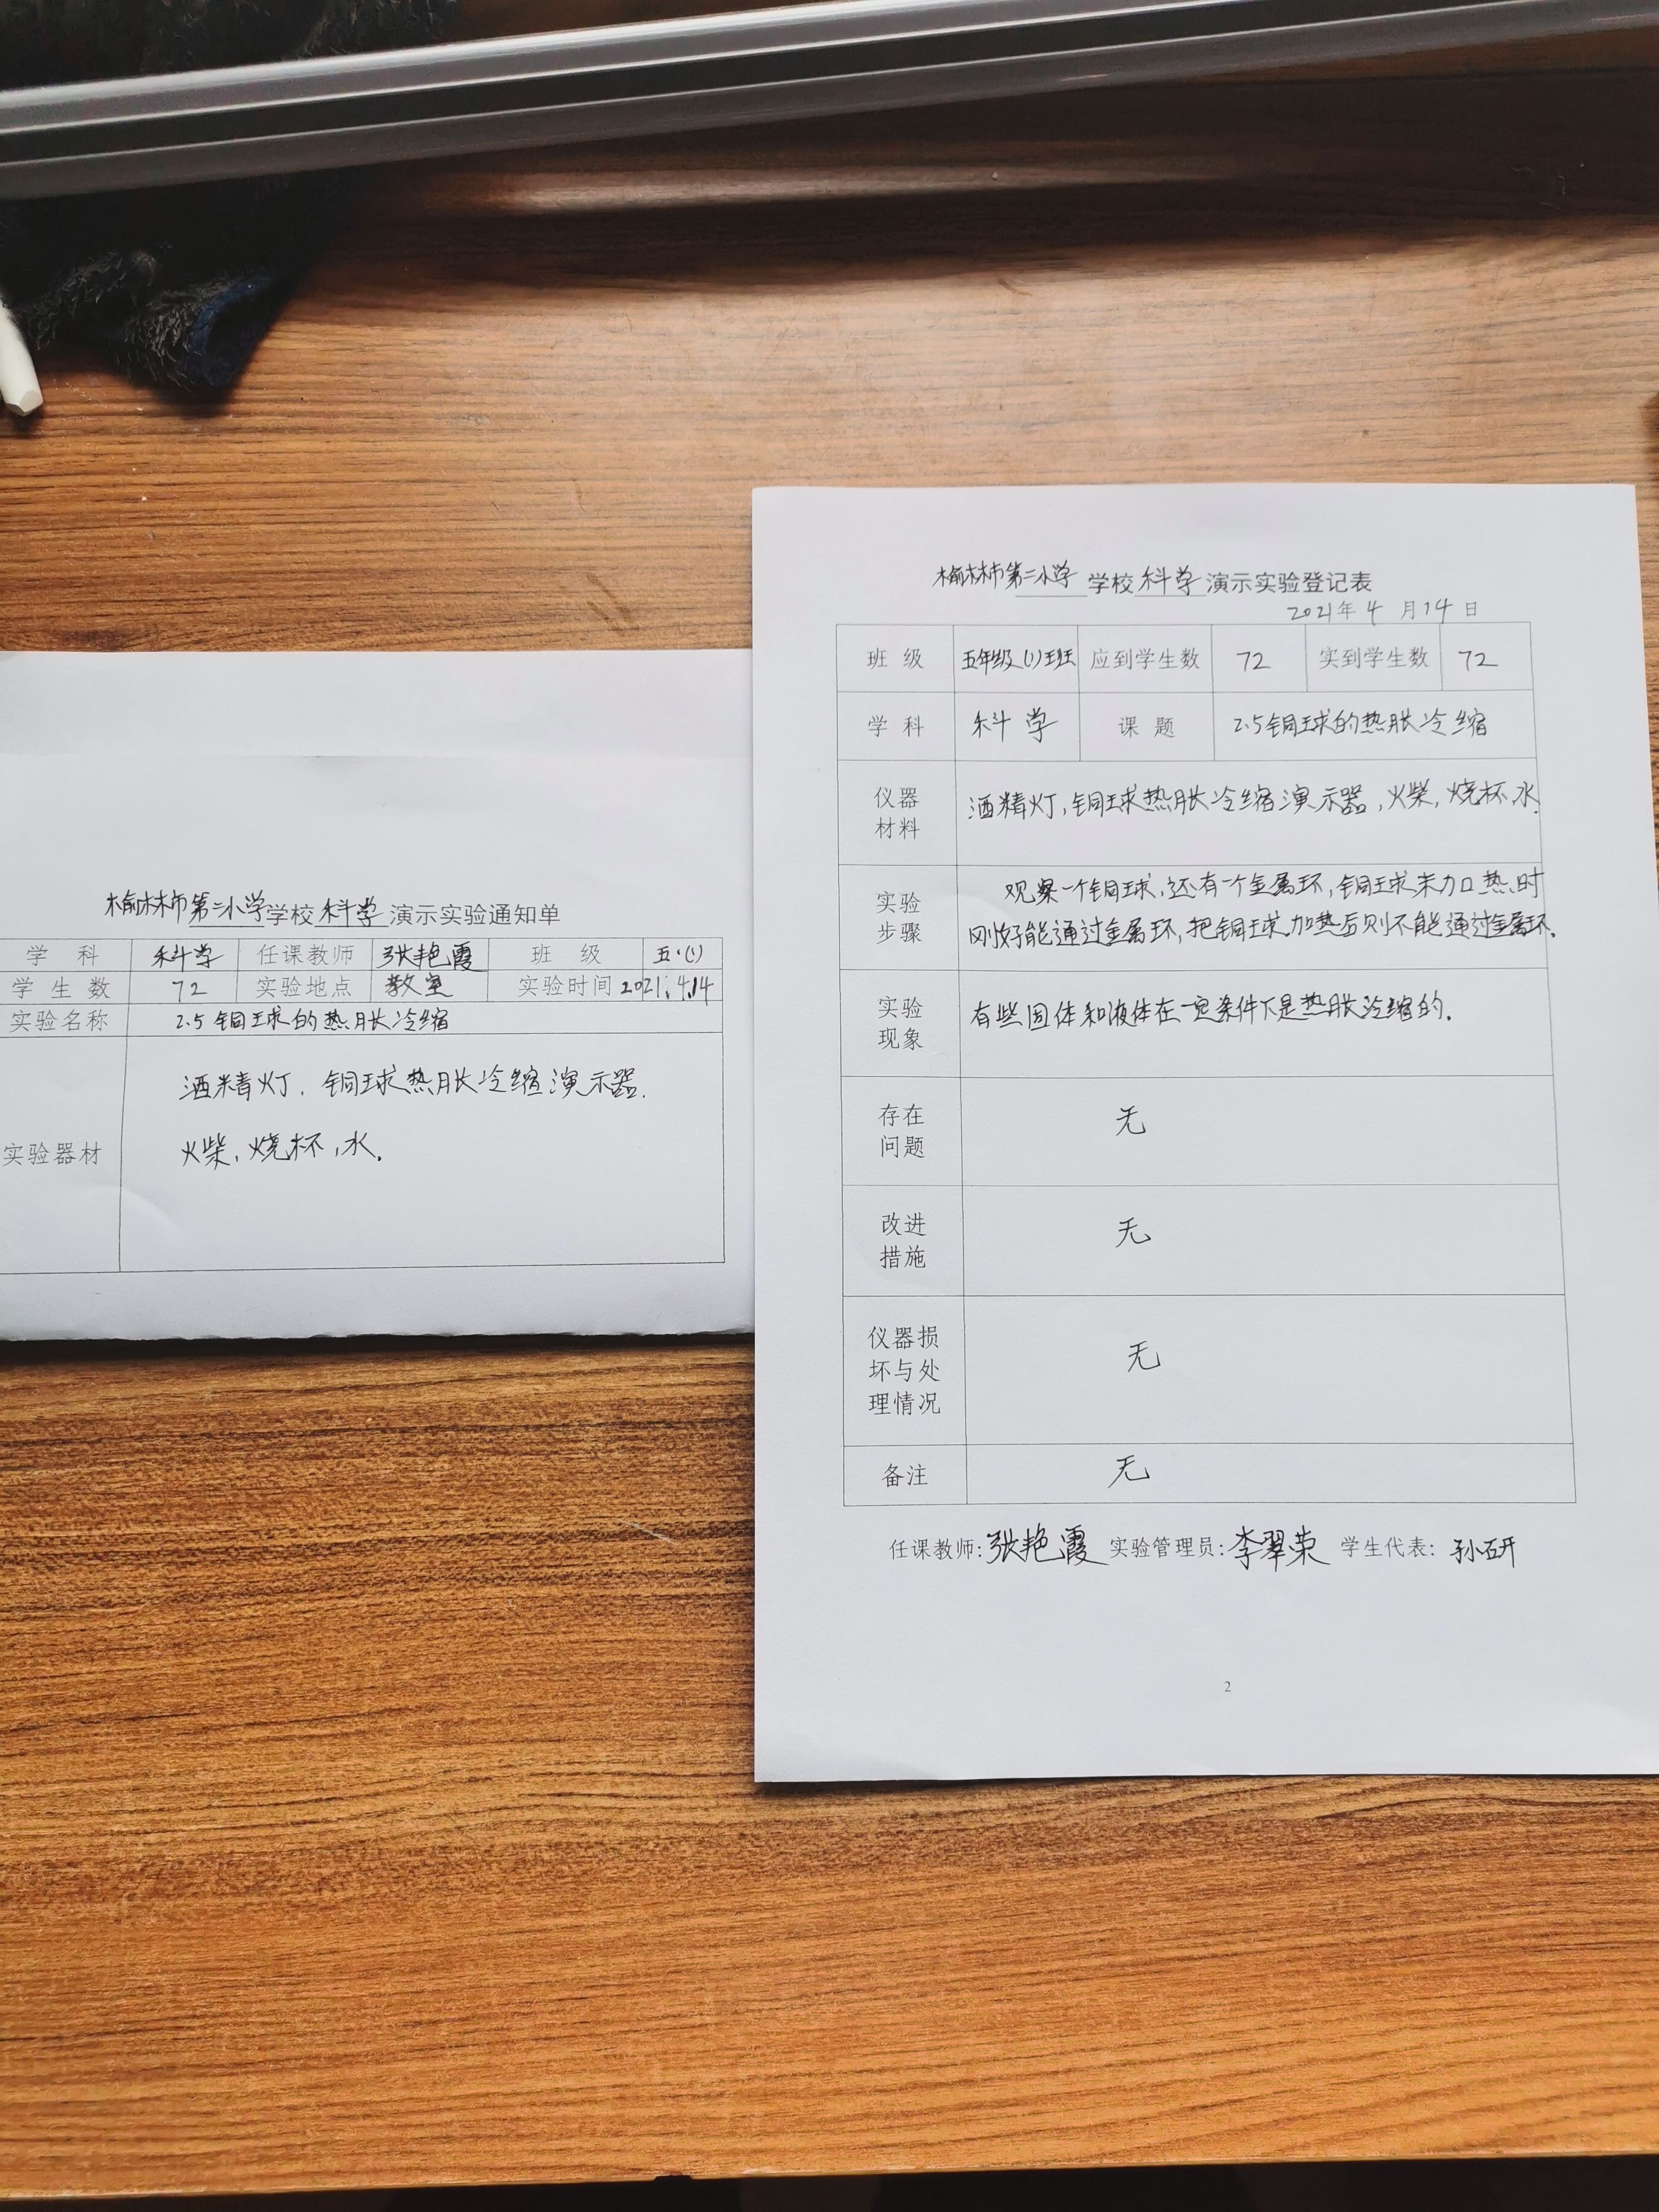 榆林市第二小学学校科学演示实验通知单
学 科 科学 任课教师 张艳霞 班 级 五·(1)
学生数 72 实验地点 教室 实验时间 2021.4.14
实验名称 2.5铜球的热胀冷缩
实验器材
酒精灯, 铜球热胀冷缩演示器.
火柴, 烧杯, 水.
榆林市第二小学学校科学演示实验登记表
2021年4月14日
班 级 五年级(1)班 应到学生数 72 实到学生数 72
学 科 科学 课 题 2.5铜球的热胀冷缩
仪器
材料
酒精灯, 铜球热胀冷缩演示器, 火柴, 烧杯, 水.
实验
步骤
观察一个铜球, 还有一个金属环, 铜球未加热时
刚好能通过金属环, 把铜球加热后则不能通过金属环.
实验
现象
有些固体和液体在一定条件下是热胀冷缩的.
存在
问题
无
改进
措施
无
仪器损
坏与处
理情况
无
备注 无
任课教师: 张艳霞 实验管理员: 李翠荣 学生代表: 孙研
2